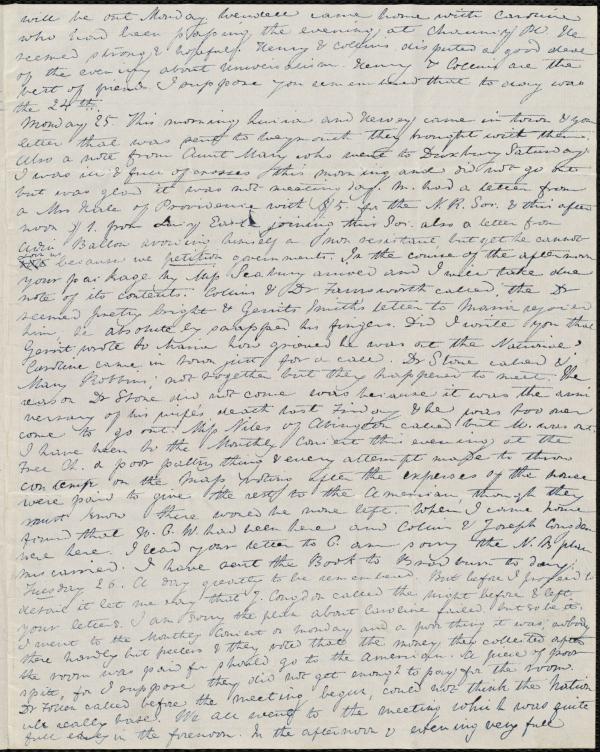 will be out Monday Wendell came home with Caroline
who had been passing the evening at Chauncy Pl. He
seemed strong & hopeful. Henry & Collins disputed a good deal
of the evening about Universalism. Henry & Collins are the
best of friends I suppose you remembered that to day was
the 24th.
Monday 25 This morning Louisa and Hervey came in town & your
letter that was sent to Weymouth they brought with them.
Also a note from Aunt Mary who went to Duxbury Saturday
I was in a fuss of crosses this morning and did not go out
but was glad it was not meeting day. M. had a letter from
a Mrs Hale of Providence with $5. for the N.R. Soc. & this after
noon $1. from Lucy joining this Soc. also a letter from
Adin Ballou avowing himself a non resistant, but yet he cannot
join us because we petition governments. In the course of the afternoon
your package by Miss Seabury arrived and I will take due
note of its contents. Collins & Dr Farnsworth called, the Dr
seemed pretty bright & Gerrit Smith's letter to Maria rejoiced
him, he absolutely snapped his fingers. Did I write you that
Gerrit wrote to Maria how grieved he was at the National?
Caroline came in town just for a call. Dr Stone called &
Mary Robbins; not together but they happened to meet. The
reason Dr Stone did not come was because it was the anni
versary of his wife's death last Friday & he was too over
come to go out. Miss Niles of Abington called but M. was out.
I have been to the Monthly Concert this evening at the
Free Ch. a poor paltry thing & every attempt made to throw
contempt on the Mass. voting after the expenses of the house
were paid to give the rest to the American, though they
must know there would be none left. When I came home
found that W. C. W. had been here and Collins & Joseph Congdon
were here. I read your letter to C. am sorry the N. B. plan
miscarried. I have sent the Book to Bradburn to day.
Tuesday 26. A day greatly to be remembered. But before I proceed to
detail it let me say that J. Congdon called the night before & left
your letter. I am sorry the plan about Caroline failed, but so be it.
I went to the Monthly Concert on Monday and a poor thing it was, nobody
there hardly but and they voted that the money they collected after
the room was paid for should go to the American. A piece of poor
spite, for I suppose they did not get enough to pay for the room.
Dr Follen called before the meeting began, could not think the Nation
al really base. We all went to the meeting which was quite
full early in the forenoon. In the afternoon & evening very full